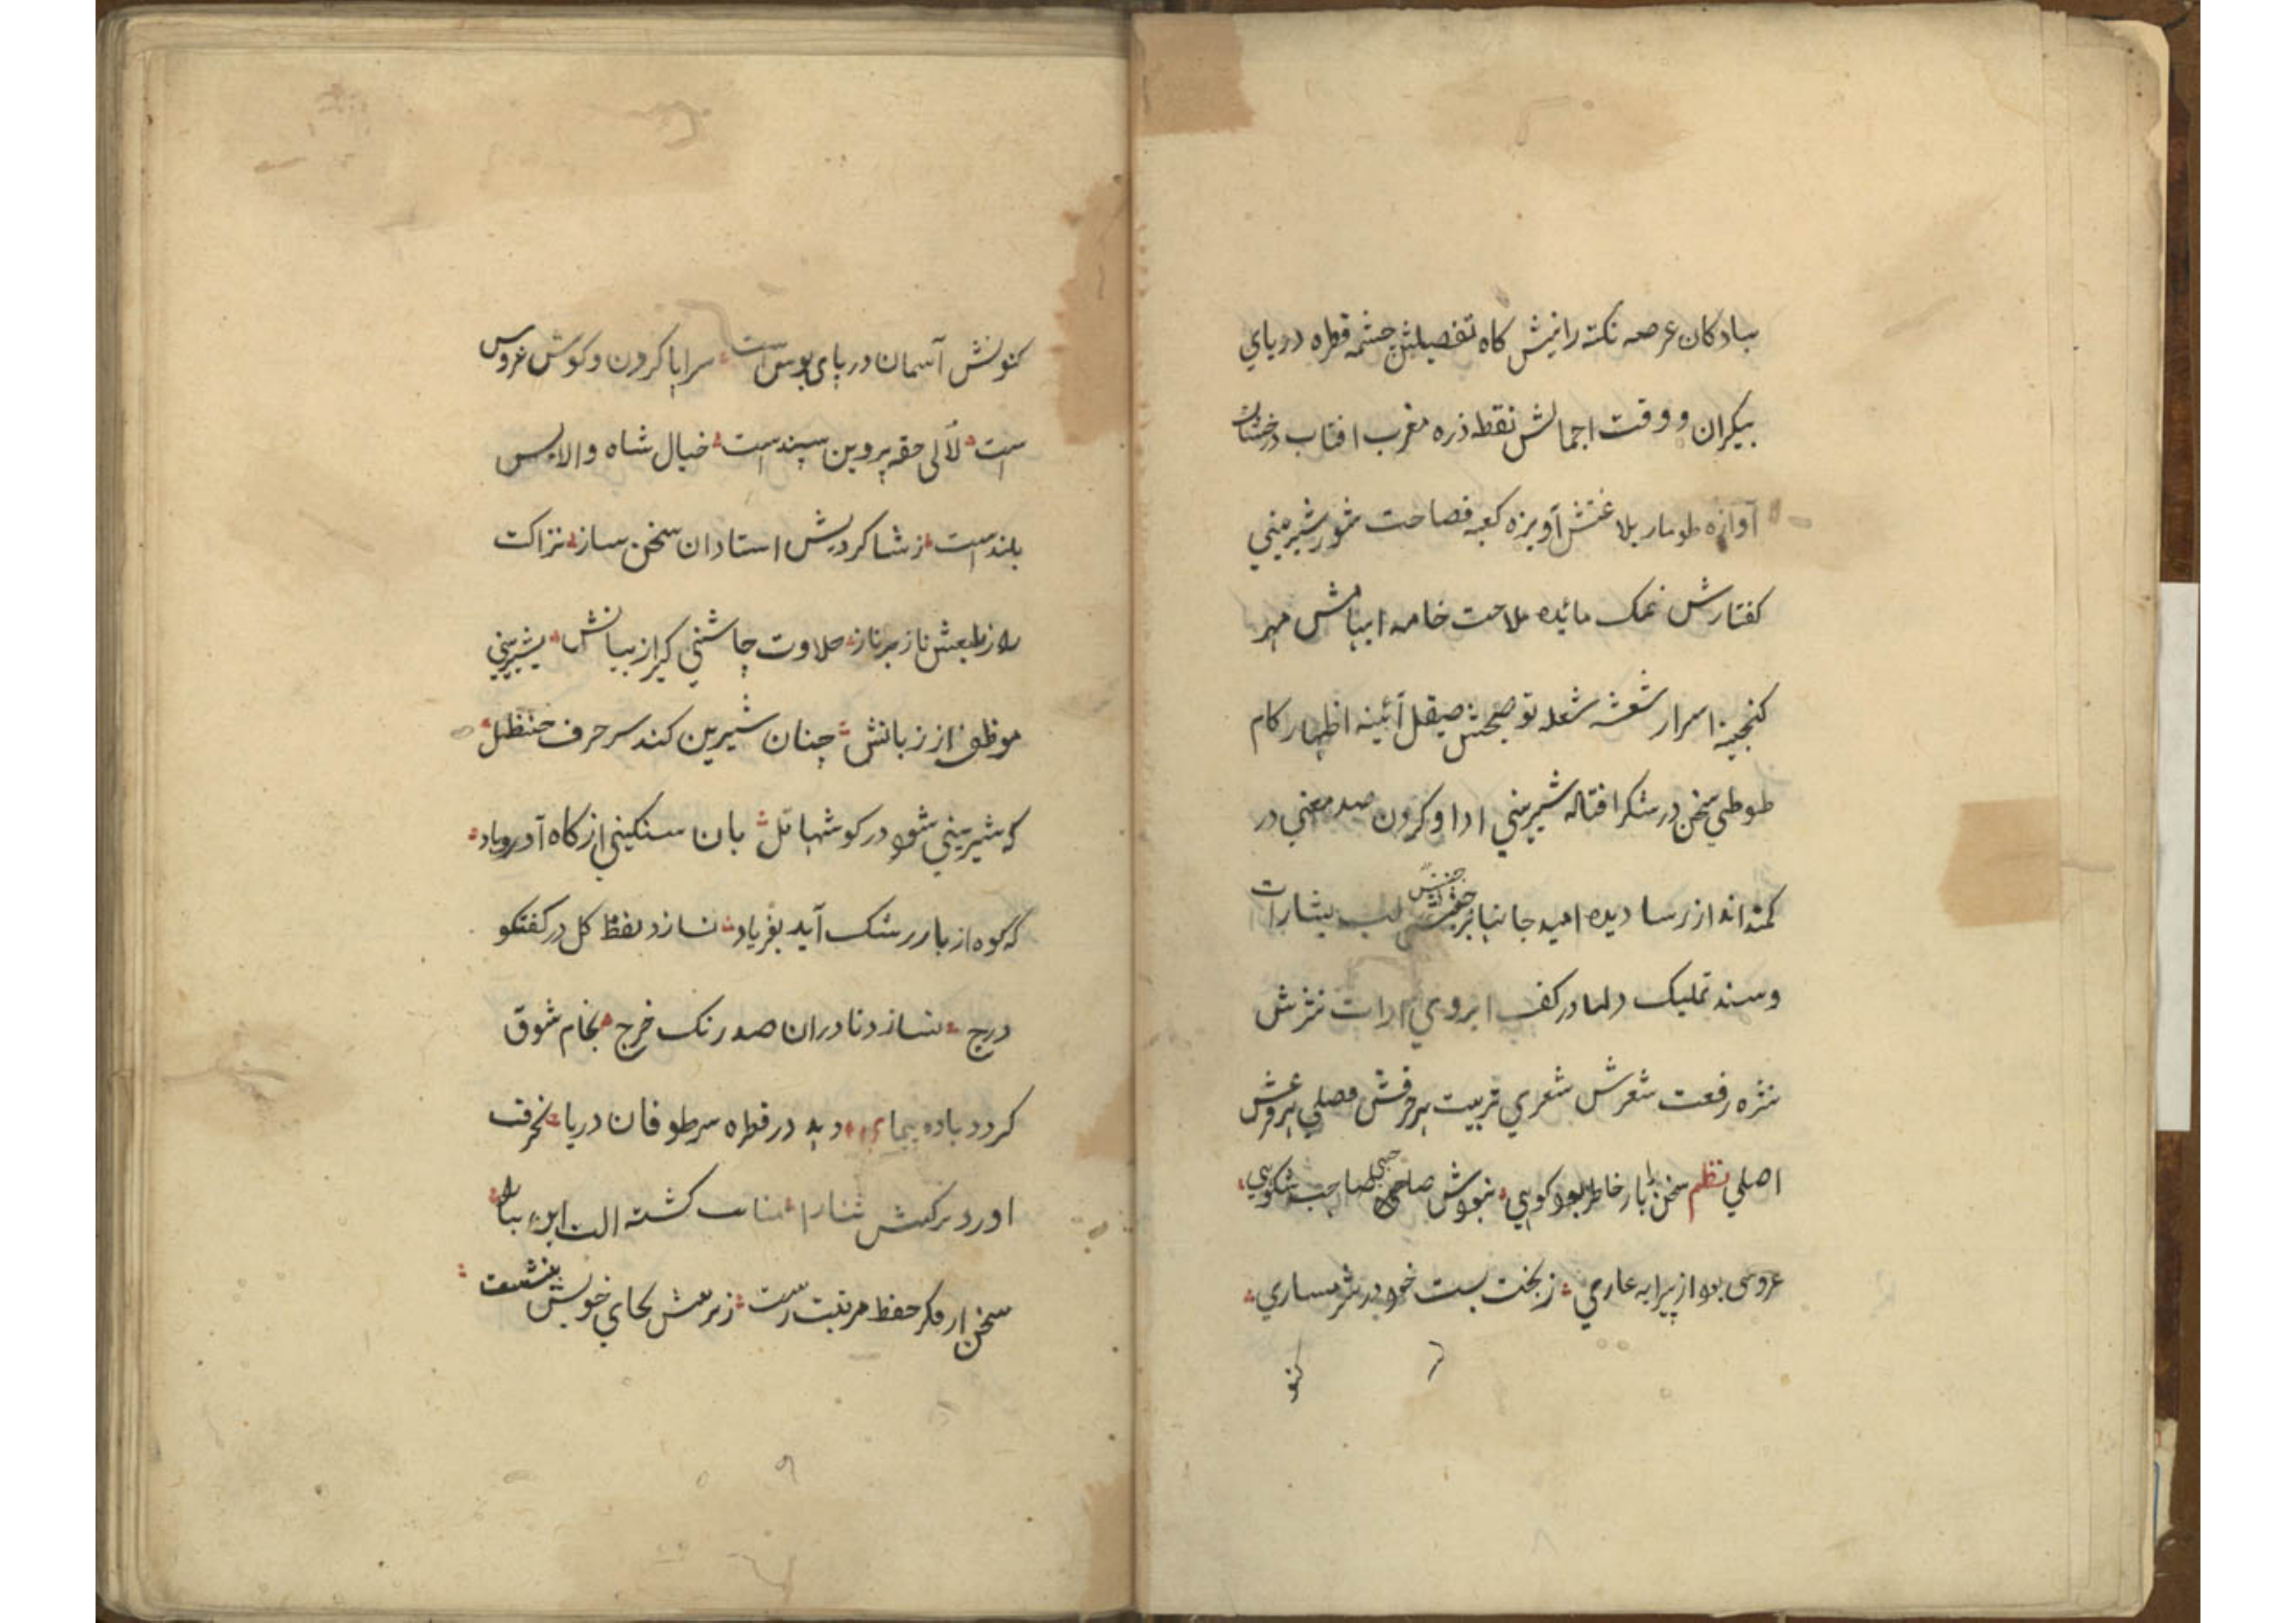 بیادکان عرصه نکته رانیش کاه تفصیلش چشمه قطره دریای
بیکران و وقت اجمالش نقطه ذره مغرب افتاب درخشان
آوازه طومار بلاغتش آویزه کعبه فصاحت شور شیرینی
کفتارش نمک مائده ملاحت خامه ایبامش مهر
کنجینه اسرار شعشه شعله توضیحش صیقل آئینه اظهار کام
طوطی سخن در شکر افتاله شیرینی ادا و کردن صد معنی در
کمند انداز رسا دیده امید جانبا بر جنبش لب بشارات
و سند تملیک دلها در کف ابروی ادات نثرش
نثره رفعت شعرش شعری تربیت هر فرش فصلی هر عرش
اصلی نظم سخن را بار خاطر بود کویی نبودش صاحبی صاحب شکویی
عروسی بود از پیرایه عاری ز بخت پست خود در شرمساری
کنو
کنونش آسمان در پای بوس است سراپا کردن و کوش عروس
است لآلی حقه پروین سپند است خیال شاه والا بس
بلند است ز شاکردیش استادان سخن ساز نزاکت
را ز طبعش ناز بر ناز حلاوت چاشنی کیر از بیانش شیرینی
موظف از زبانش چنان شیرین کند سر حرف حنظل
که شیرینی شود در کوشها تل بان سنکینی از کاه آورد یاد
که کوه از بار رشک آید بفریاد نسازد لفظ کل در کفتکو
درج نسازد تا دران صد رنک خرج بجام شوق
کردد باده پیمای دهد در قطره سر طوفان دریا بحرفت
اورد نرکس ثنا را کشته الت این بیان را
سخن از فکر حفظ مرتبت رست بجای خویش بنشست